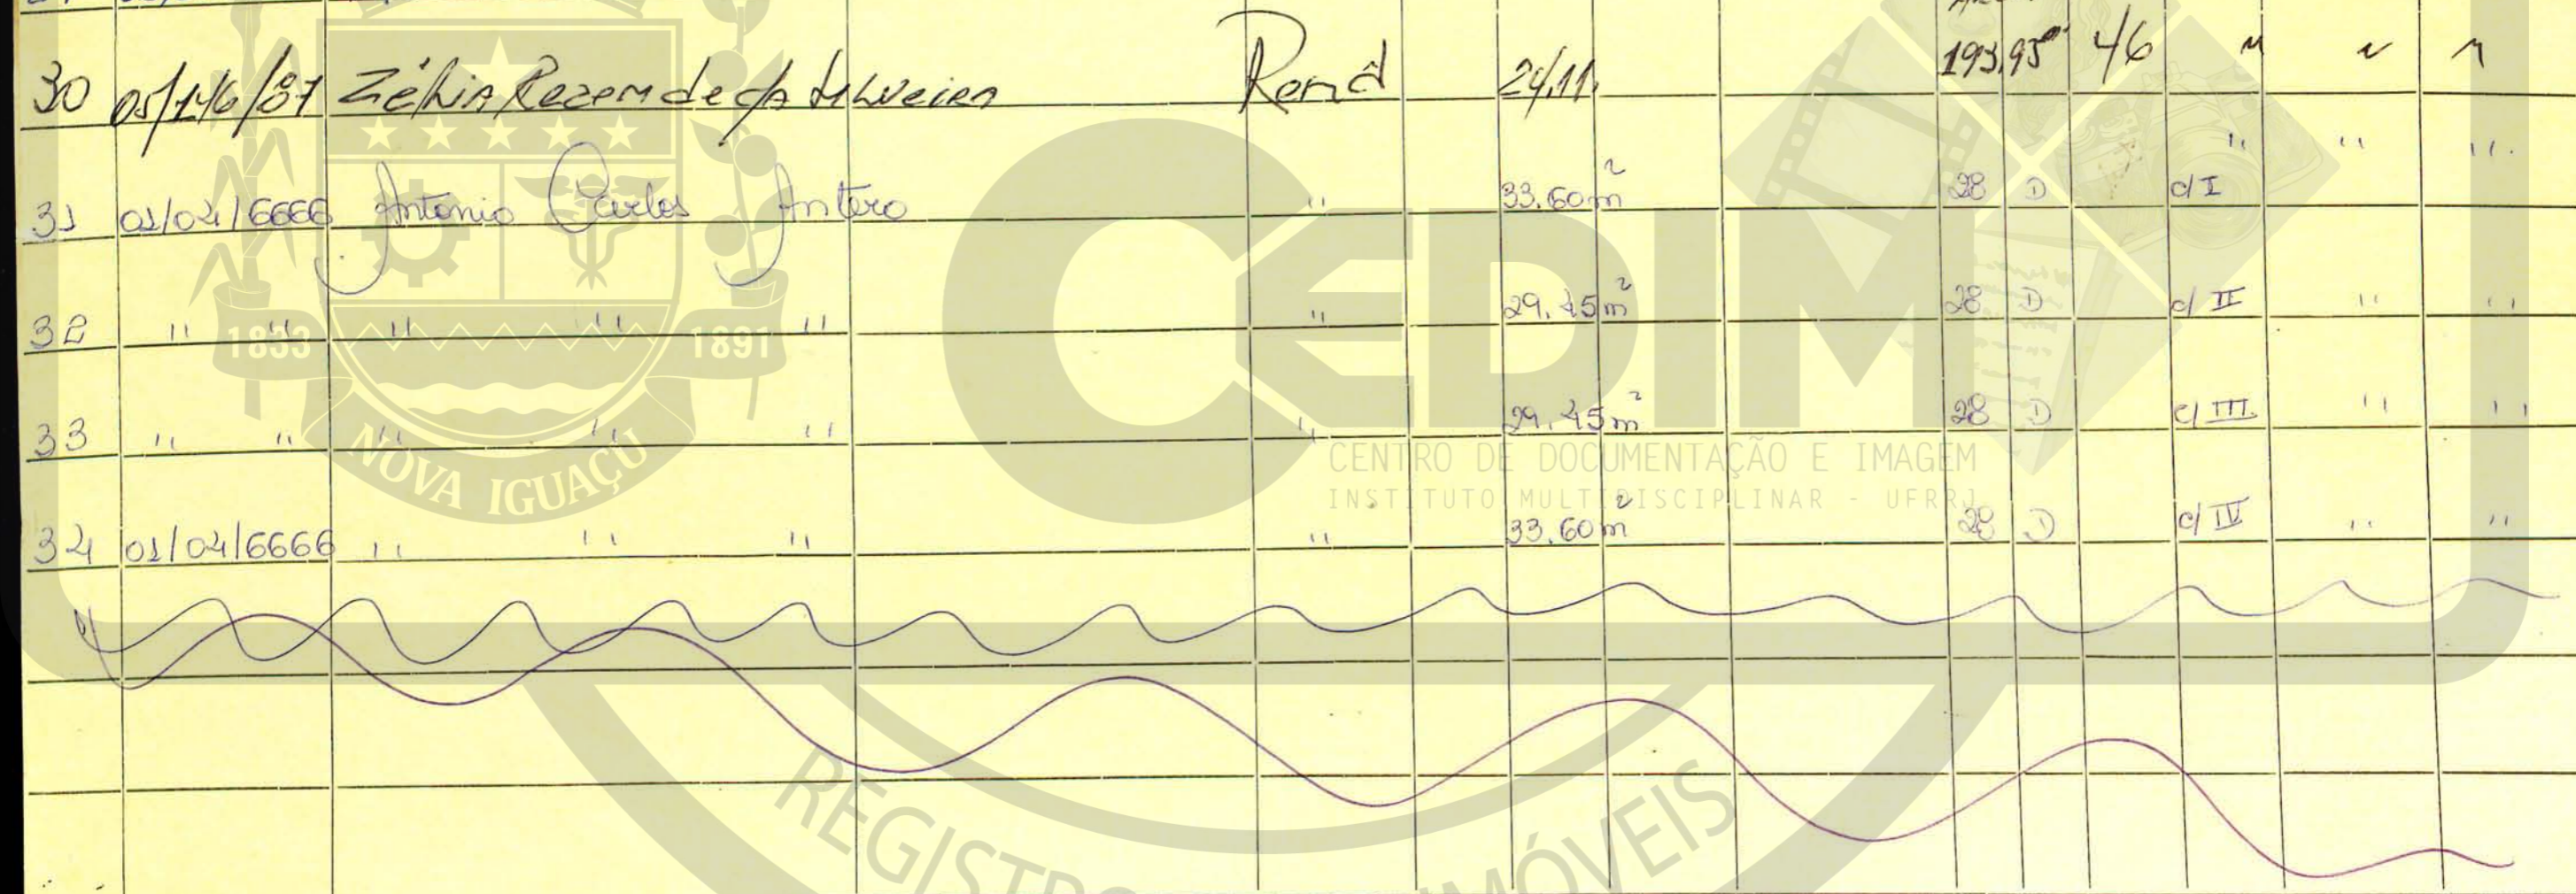 30 05/146/87 Zélia Rezende da Silveira Rend 24,11, 193,95 46 " " "
" " "
31 01/04/6666 Antonio Carlos Antero " 33.60m² 28 D c/ I
32 " " " " " " 29.45m² 28 D c/ II " "
33 " " " " " " 29.45m² 28 D c/ III " "
34 01/04/6666 " " " " 33.60m² 28 D c/ IV " "
1833 1891
NOVA IGUAÇU
CEDIM
CENTRO DE DOCUMENTAÇÃO E IMAGEM
INSTITUTO MULTIDISCIPLINAR - UFRRJ
REGISTRO IMÓVEIS